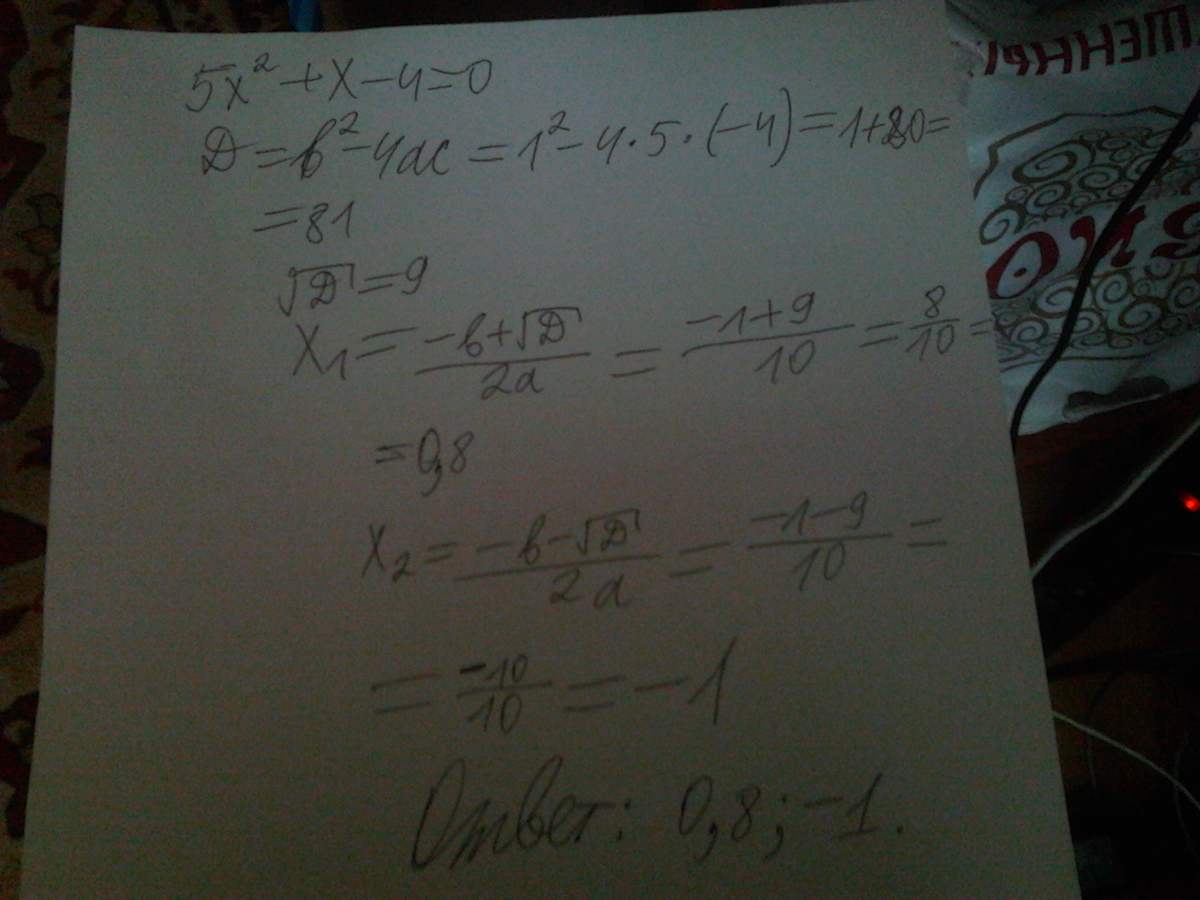 5x² + x - 4 = 0
D = b² - 4ac = 1² - 4 · 5 · (-4) = 1 + 80 =
= 81
√D = 9
x₁ = (-b + √D) / 2a = (-1 + 9) / 10 = 8/10 =
= 0,8
x₂ = (-b - √D) / 2a = (-1 - 9) / 10 =
= -10/10 = -1
Ответ: 0,8; -1.